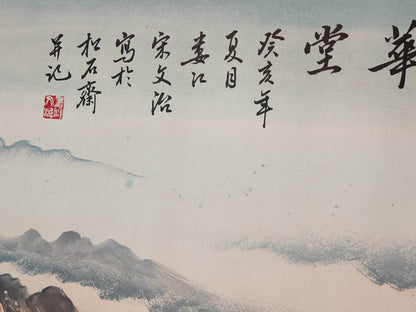 華堂
癸亥年
夏月
婁江
宋文治
寫於
松石齋
并记